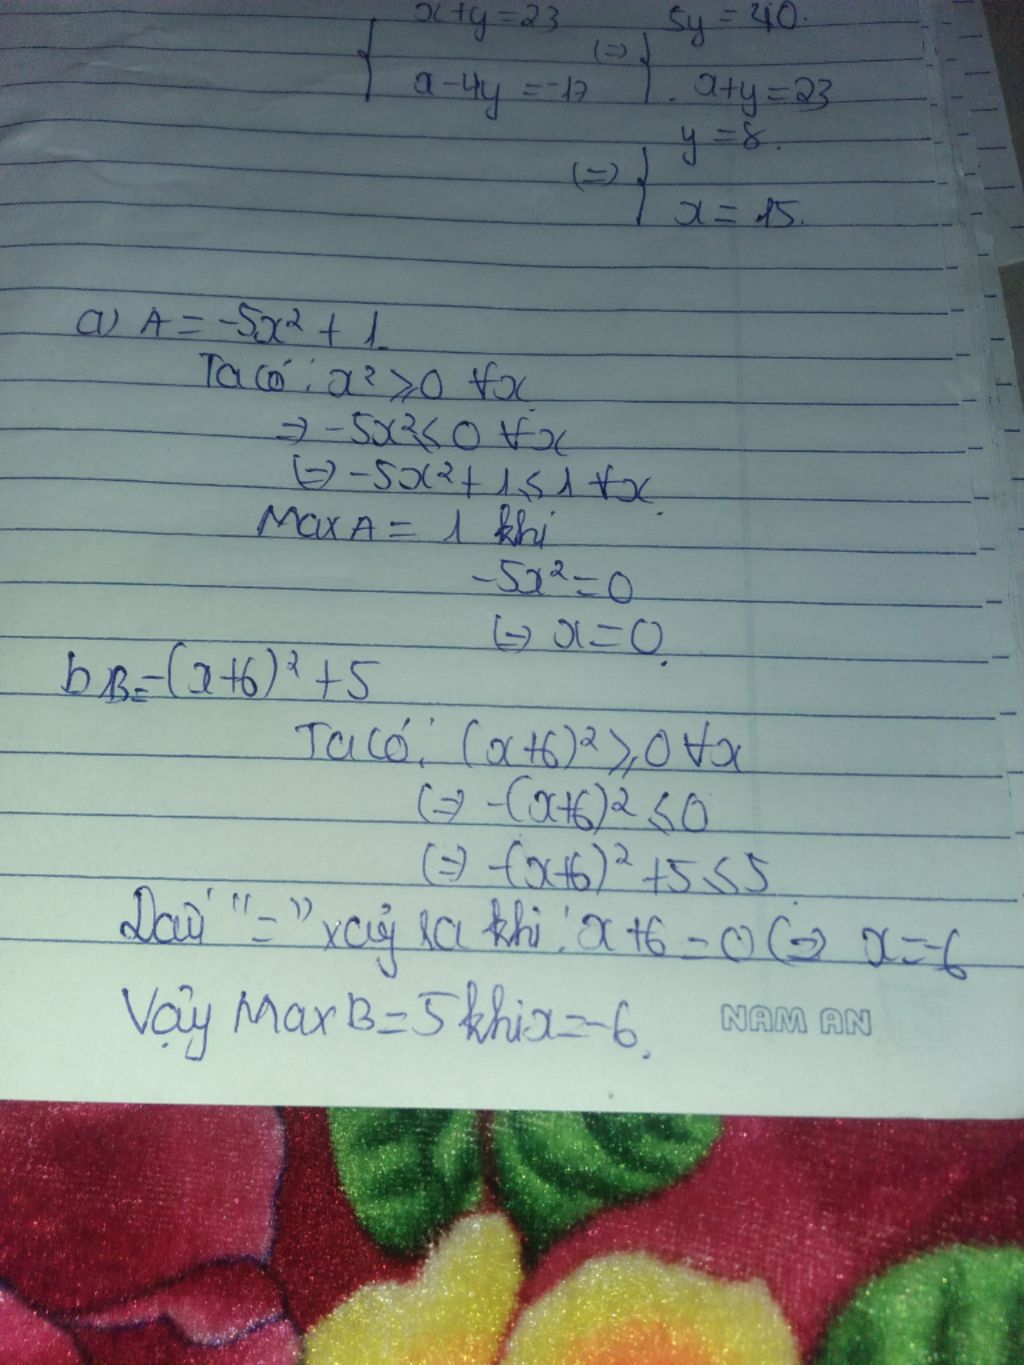 x+y=23 5y=40.
(=)
x-4y=-17 . x+y=23
y=8.
(=)
x=15.
a) A=-5x²+1
Ta có: x²⩾0 ∀x.
=> -5x²⩽0 ∀x
(=) -5x²+1⩽1 ∀x.
Max A = 1 khi
-5x²=0
(=) x=0.
b B=-(x+6)²+5
Ta có: (x+6)²⩾0 ∀x
(=) -(x+6)²⩽0
(=) -(x+6)²+5⩽5.
Dấu "=" xảy ra khi: x+6=0 (=) x=-6
Vậy Max B=5 khi x=-6.
NAM AN